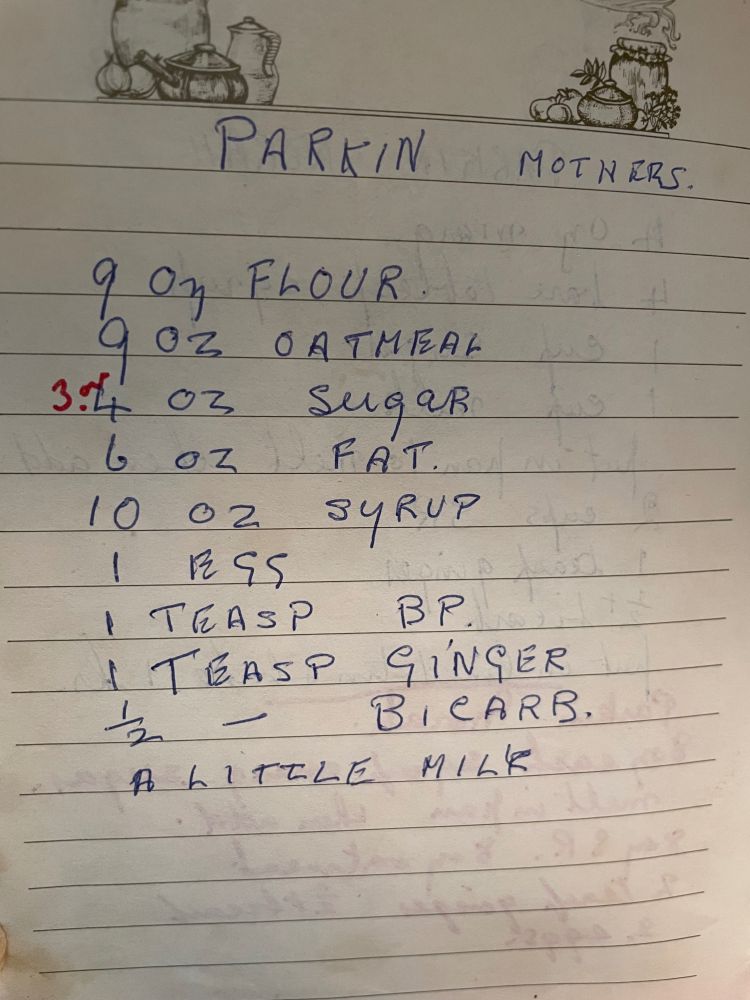 PARKIN MOTHERS.
9 Oz FLOUR.
9 OZ OATMEAL
3. 4 OZ SUGAR
6 OZ FAT.
10 OZ SYRUP
1 EGG
1 TEASP BP.
1 TEASP GINGER
1/2 — BICARB.
A LITTLE MILK